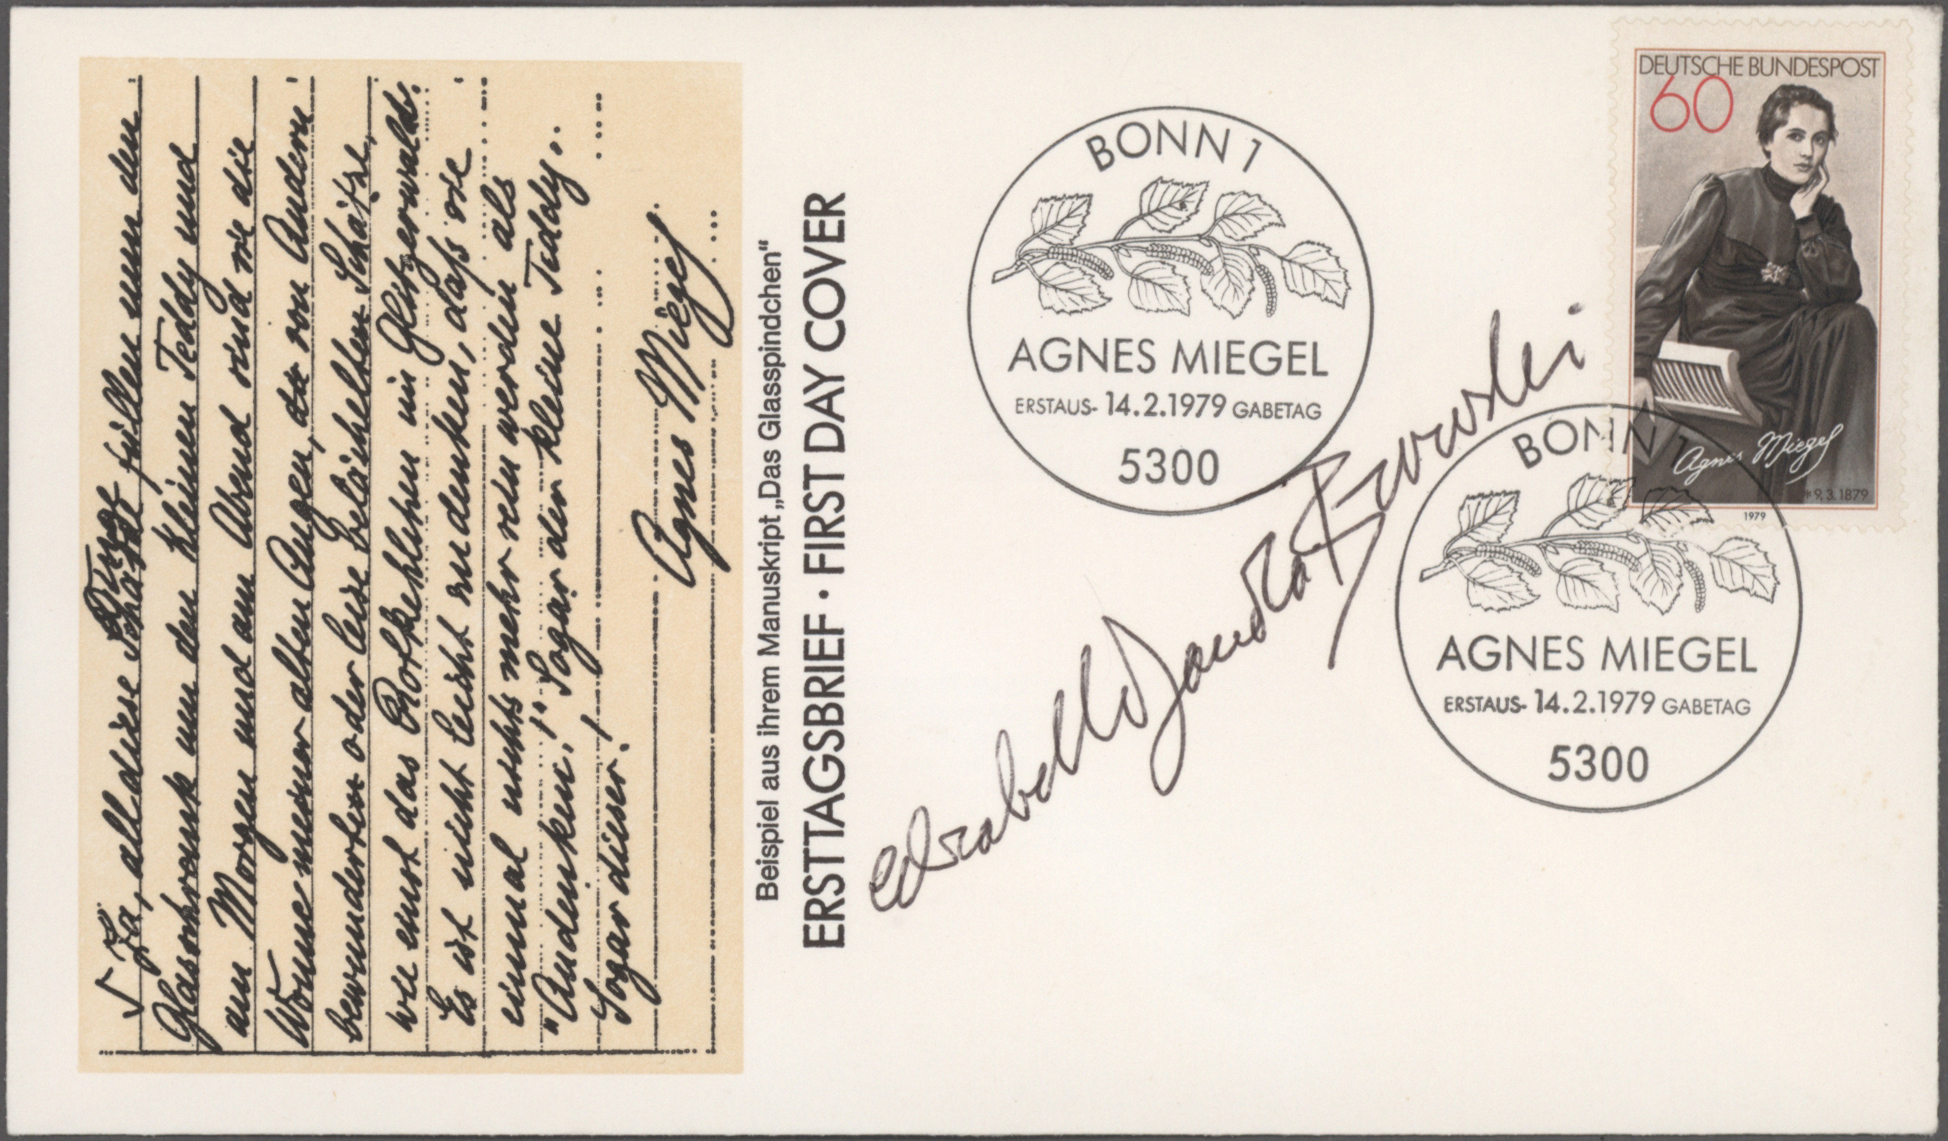 Ja, all diese Dinge füllen nun den
Glasschrank um den kleinen Teddy und
am Morgen und am Abend sind sie die
Wonne meiner alten Augen, die von Andern
bewunderten oder leise belächelten Schätze,
wie einst das Rotkehlchen im Glitzerwald.
Es ist nicht leicht zu denken, dass sie
einmal nichts mehr sein werden als
"Andenken!" Sogar der kleine Teddy..
Sogar dieser!
Agnes Miegel
Beispiel aus ihrem Manuskript „Das Glasspindchen“
ERSTTAGSBRIEF · FIRST DAY COVER
BONN 1
AGNES MIEGEL
ERSTAUS- 14.2.1979 GABETAG
5300
DEUTSCHE BUNDESPOST
60
Agnes Miegel
* 9.3.1879
1979
BONN 1
AGNES MIEGEL
ERSTAUS- 14.2.1979 GABETAG
5300